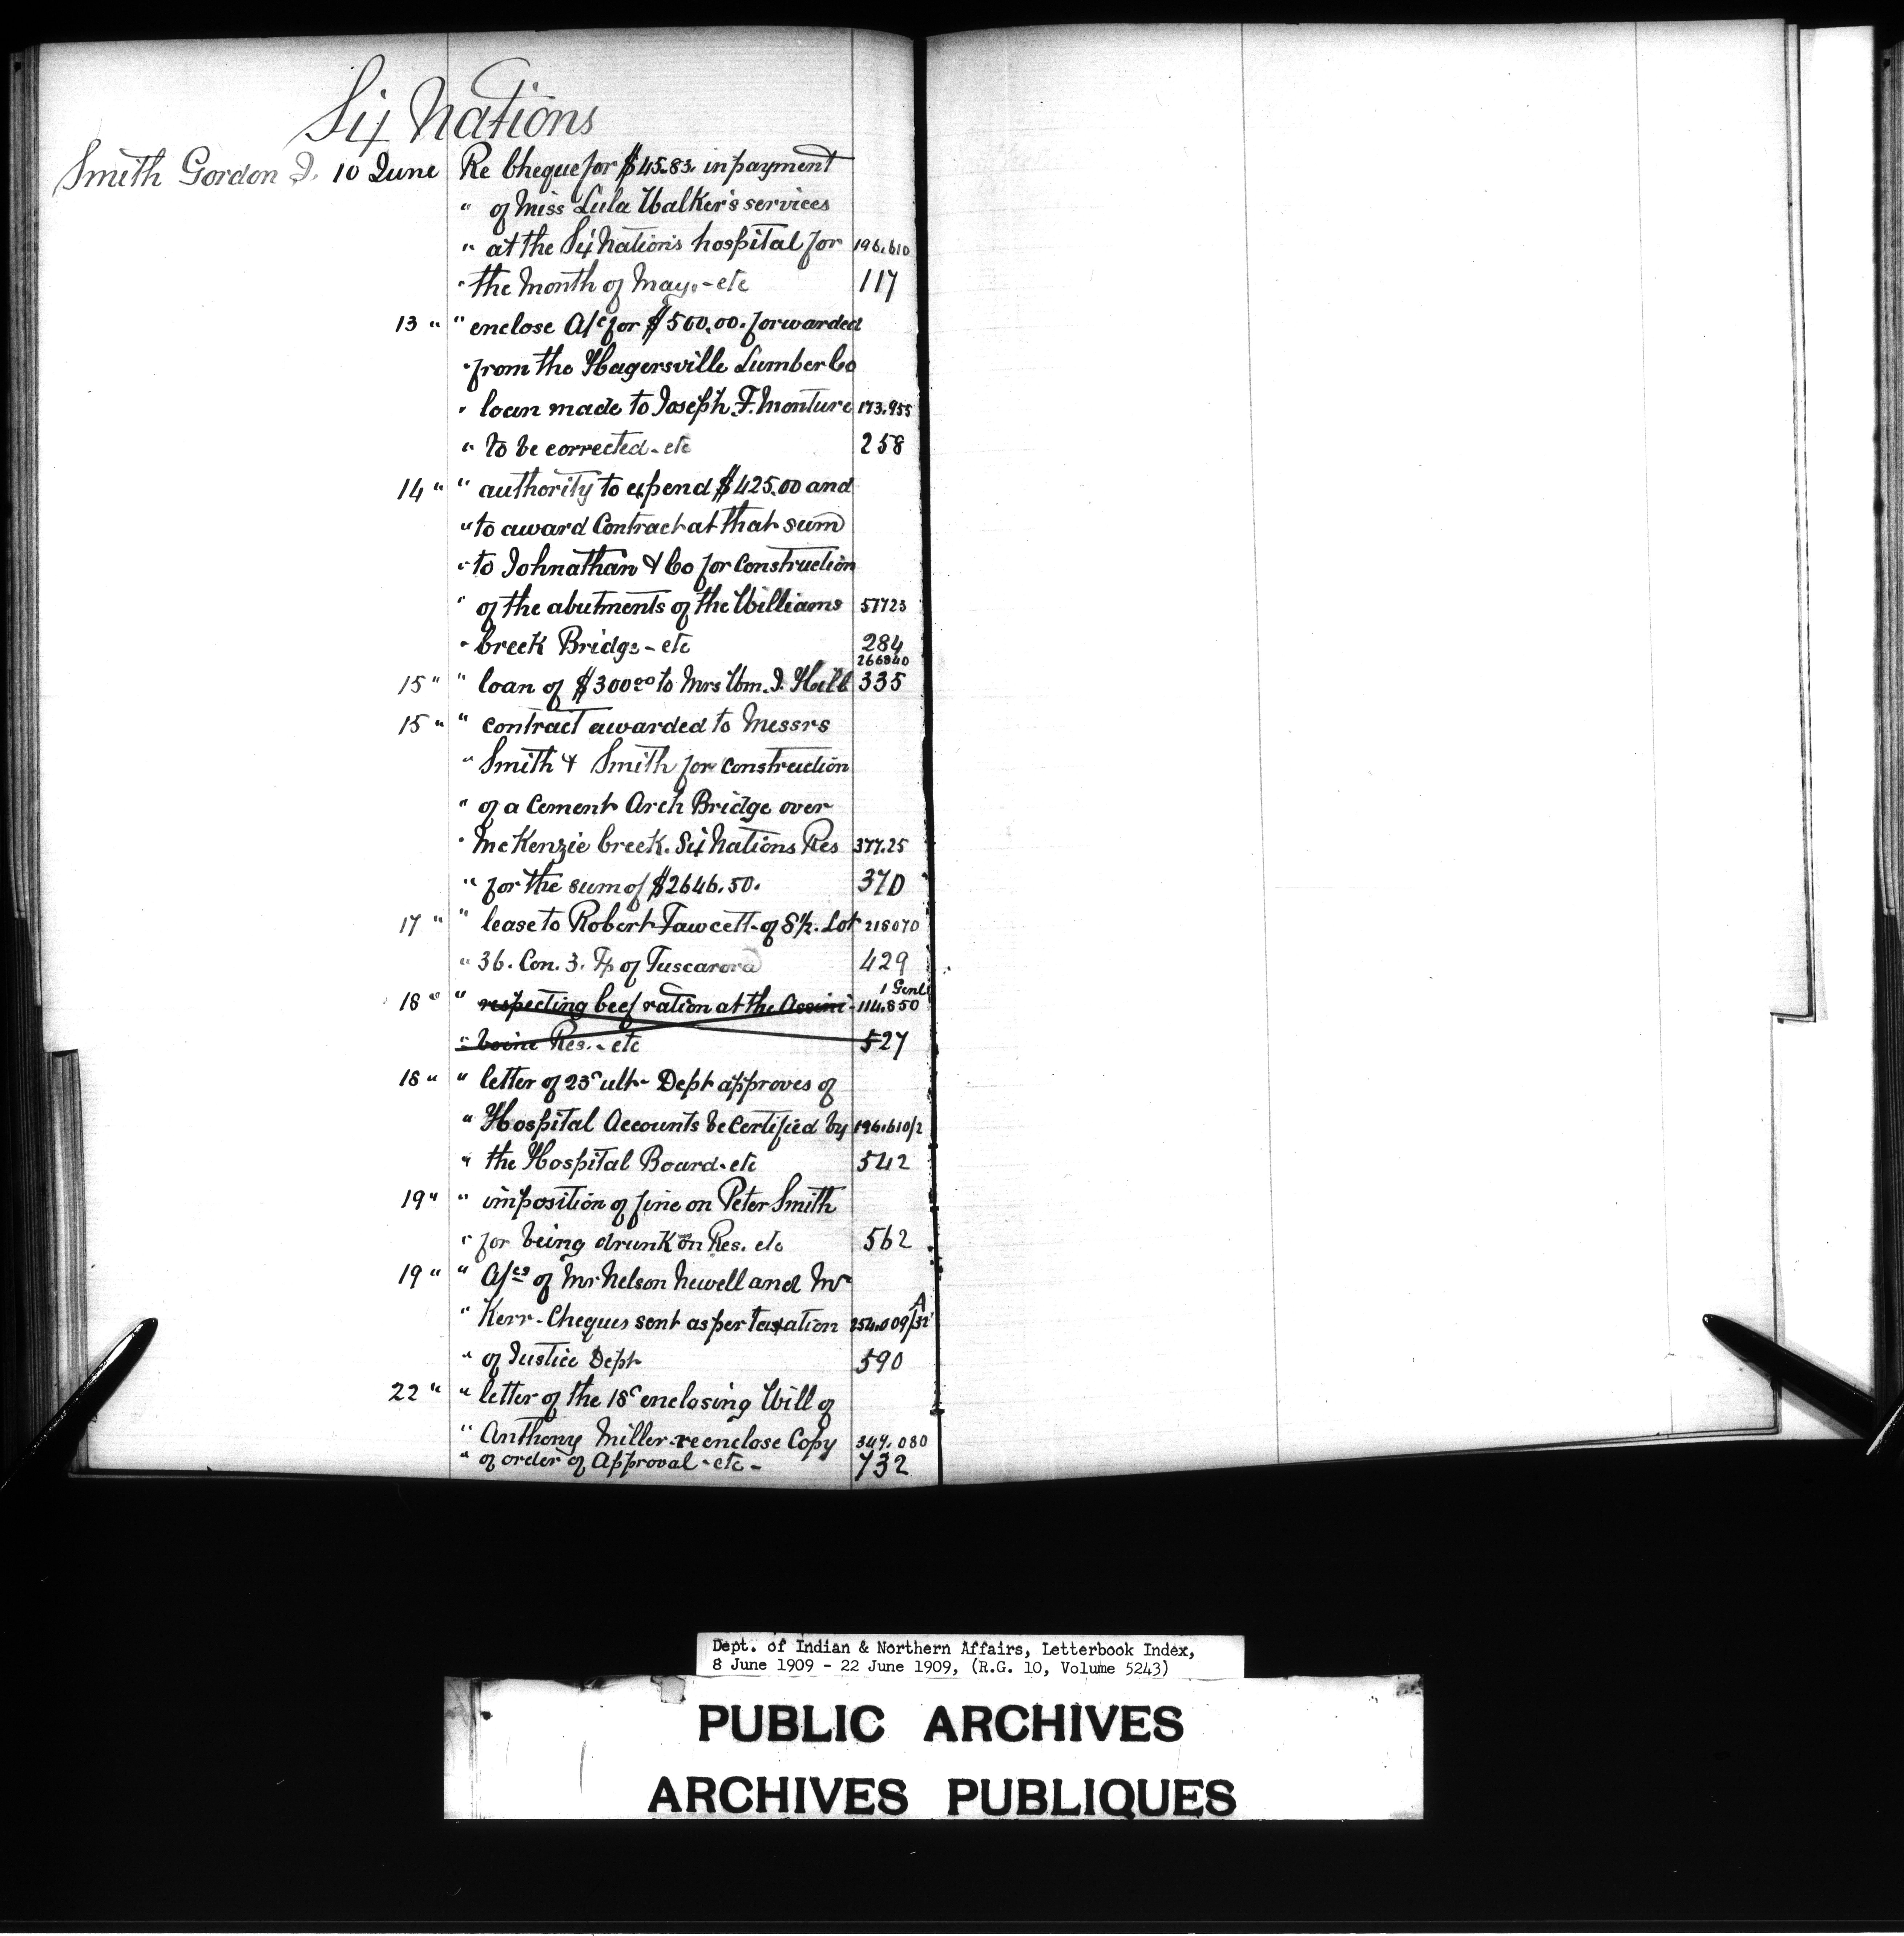 Six Nations
Smith Gordon J. 10 June Re Cheque for $45.83. in payment
" of Miss Lula Walker's services
" at the Six Nations hospital for 196.610
" the Month of May. - etc 117
13 " " enclose A/c for $500.00. forwarded
" from the Hagersville Lumber Co
" loan made to Joseph F. Monture 173.955
" to be corrected - etc 258
14 " " authority to expend $425.00 and
" to award Contract at that sum
" to Johnathan & Co for Construction
" of the abutments of the Williams 57723
" Creek Bridge - etc 284
266840
15 " " loan of $300.00 to Mrs Wm. J. Hill 335
15 " " contract awarded to Messrs
" Smith & Smith for construction
" of a Cement Arch Bridge over
" McKenzie Creek. Six Nations Res 377.25
" for the sum of $2646.50. 370
17 " " lease to Robert Fawcett - of S½. Lot 218070
" 36. Con. 3. Tp of Tuscarora 429
1 Genl
18 " " respecting beef ration at the Assini- 114.850
" boine Res. - etc 527
18 " " letter of 23rd ult - Dept approves of
" Hospital Accounts be Certified by 196.610/2
" the Hospital Board - etc 542
19 " " imposition of fine on Peter Smith
" for being drunk on Res. etc 562
19 " " A/cs of Mr Nelson Newell and Mr
" Kerr - Cheques sent as per taxation 254.009/32 A
" of Justice Dept 590
22 " " letter of the 18th enclosing Will of
" Anthony Miller - re enclose Copy 347.080
" of order of Approval - etc - 732
Dept. of Indian & Northern Affairs, Letterbook Index,
8 June 1909 - 22 June 1909, (R.G. 10, Volume 5243)
PUBLIC ARCHIVES
ARCHIVES PUBLIQUES